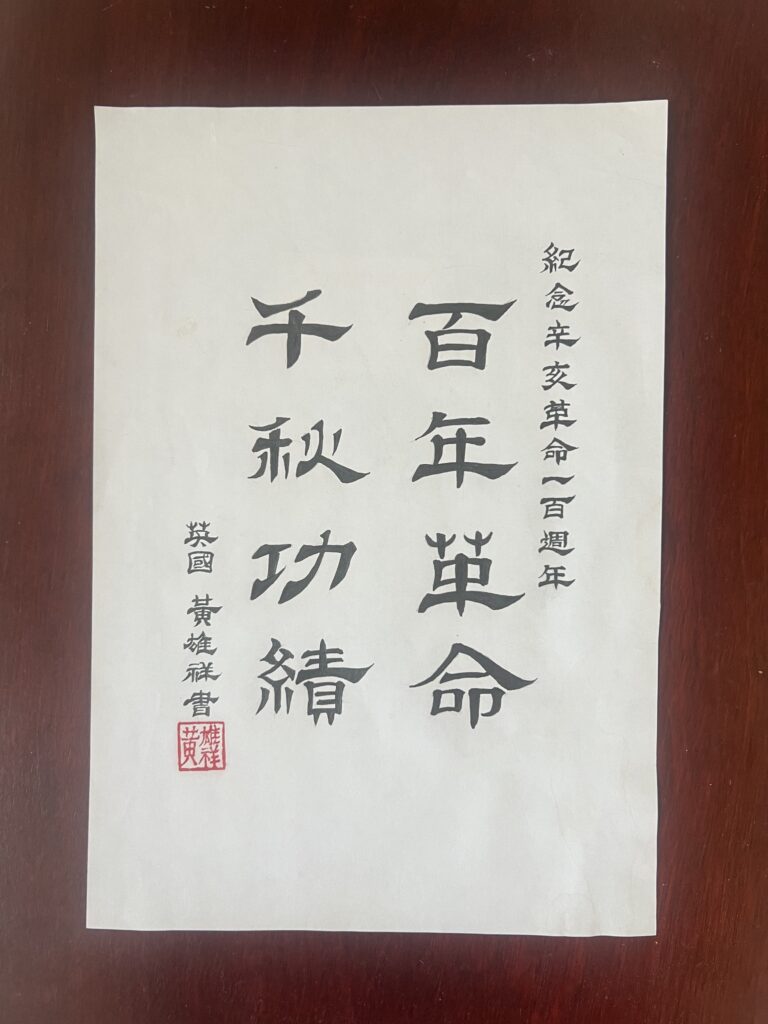 紀念辛亥革命一百週年
百年革命
千秋功績
英國 黃雄祥書
雄祥
黃